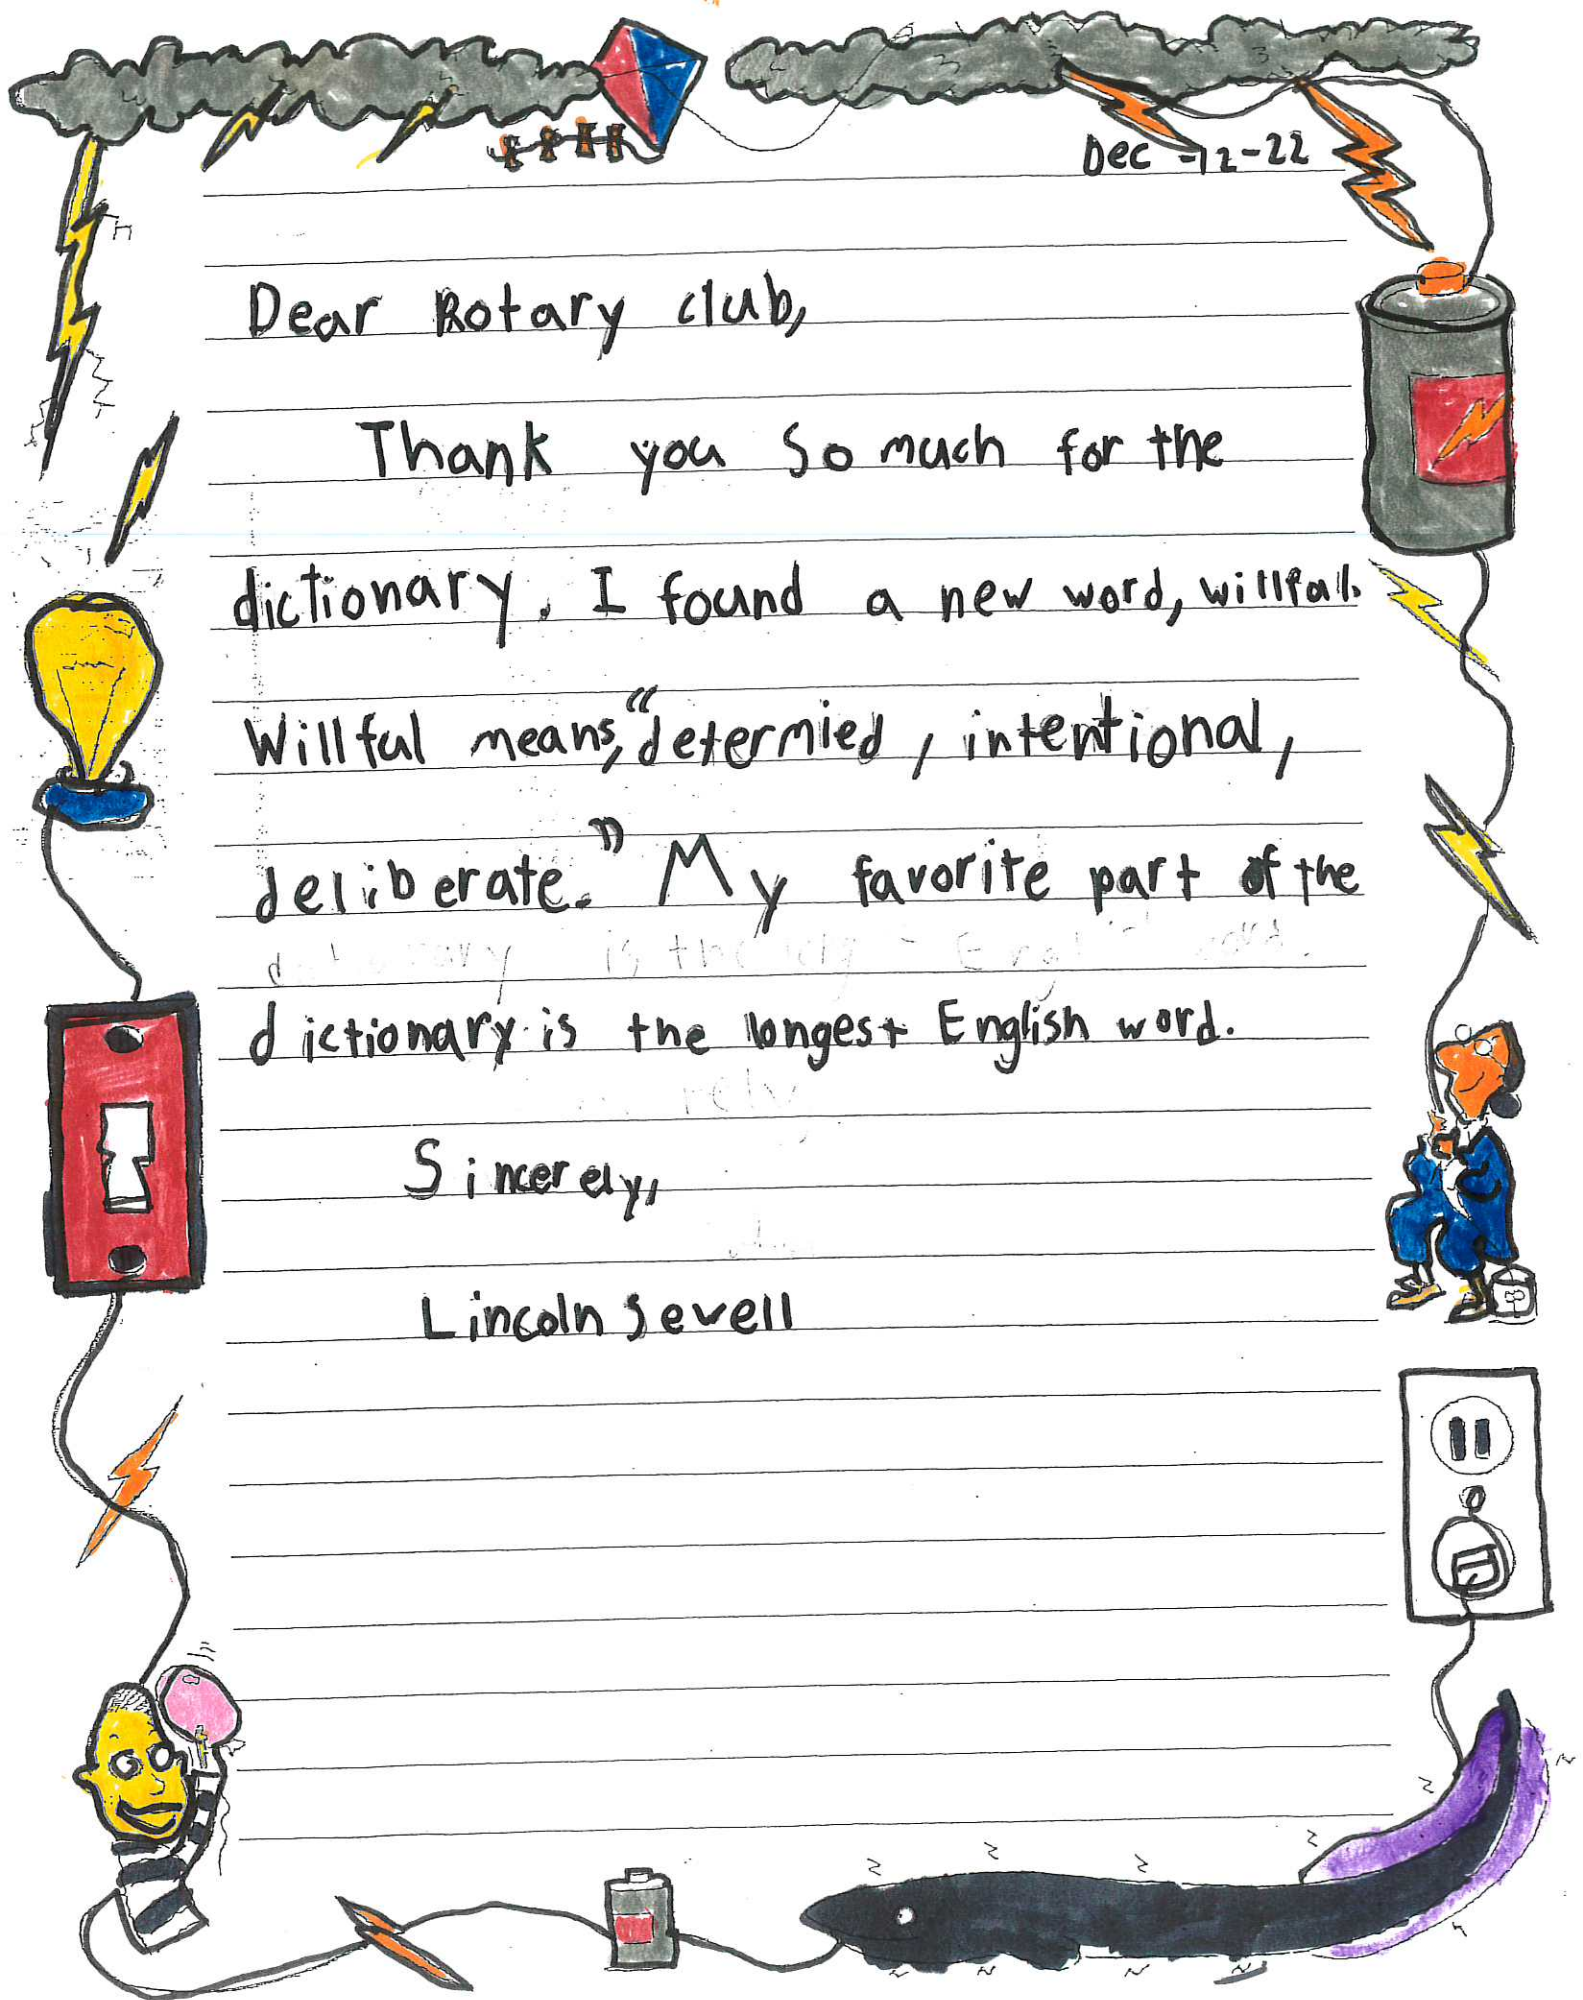 Dec -12-22
Dear Rotary club,
Thank you so much for the
dictionary. I found a new word, willful.
Willful means, "determied, intentional,
deliberate." My favorite part of the
dictionary is the longest English word.
Sincerely,
Lincoln Sewell